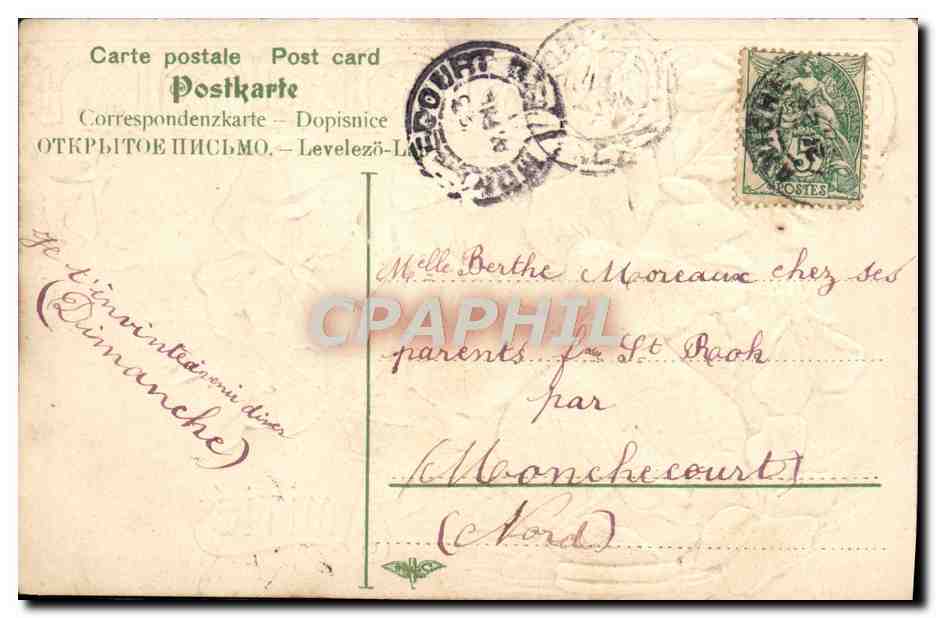 Carte postale Post card
Postkarte
Correspondenzkarte – Dopisnice
ОТКРЫТОЕ ПИСЬМО. – Levelező-L
MONCHECOURT
ANICHE
5
POSTES
Je t'invinte à venir diner
(Dimanche)
Melle Berthe Moreaux chez ses
parents fau St Rook
par
(Monchecourt)
(Nord)
CPAPHIL